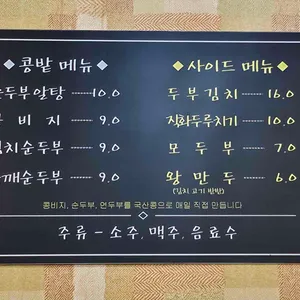 ◆콩밭 메뉴◆
순두부알탕 ------ 10.0
콩 비 지 ------ 9.0
김치순두부 ------ 9.0
들깨순두부 ------ 9.0
◆사이드 메뉴◆
두부김치 ------ 16.0
직화두루치기 ------ 10.0
모 두 부 ------ 7.0
왕 만 두 ------ 6.0
(김치,고기 반반)
콩비지, 순두부, 연두부를 국산콩으로 매일 직접 만듭니다
주류 - 소주, 맥주, 음료수